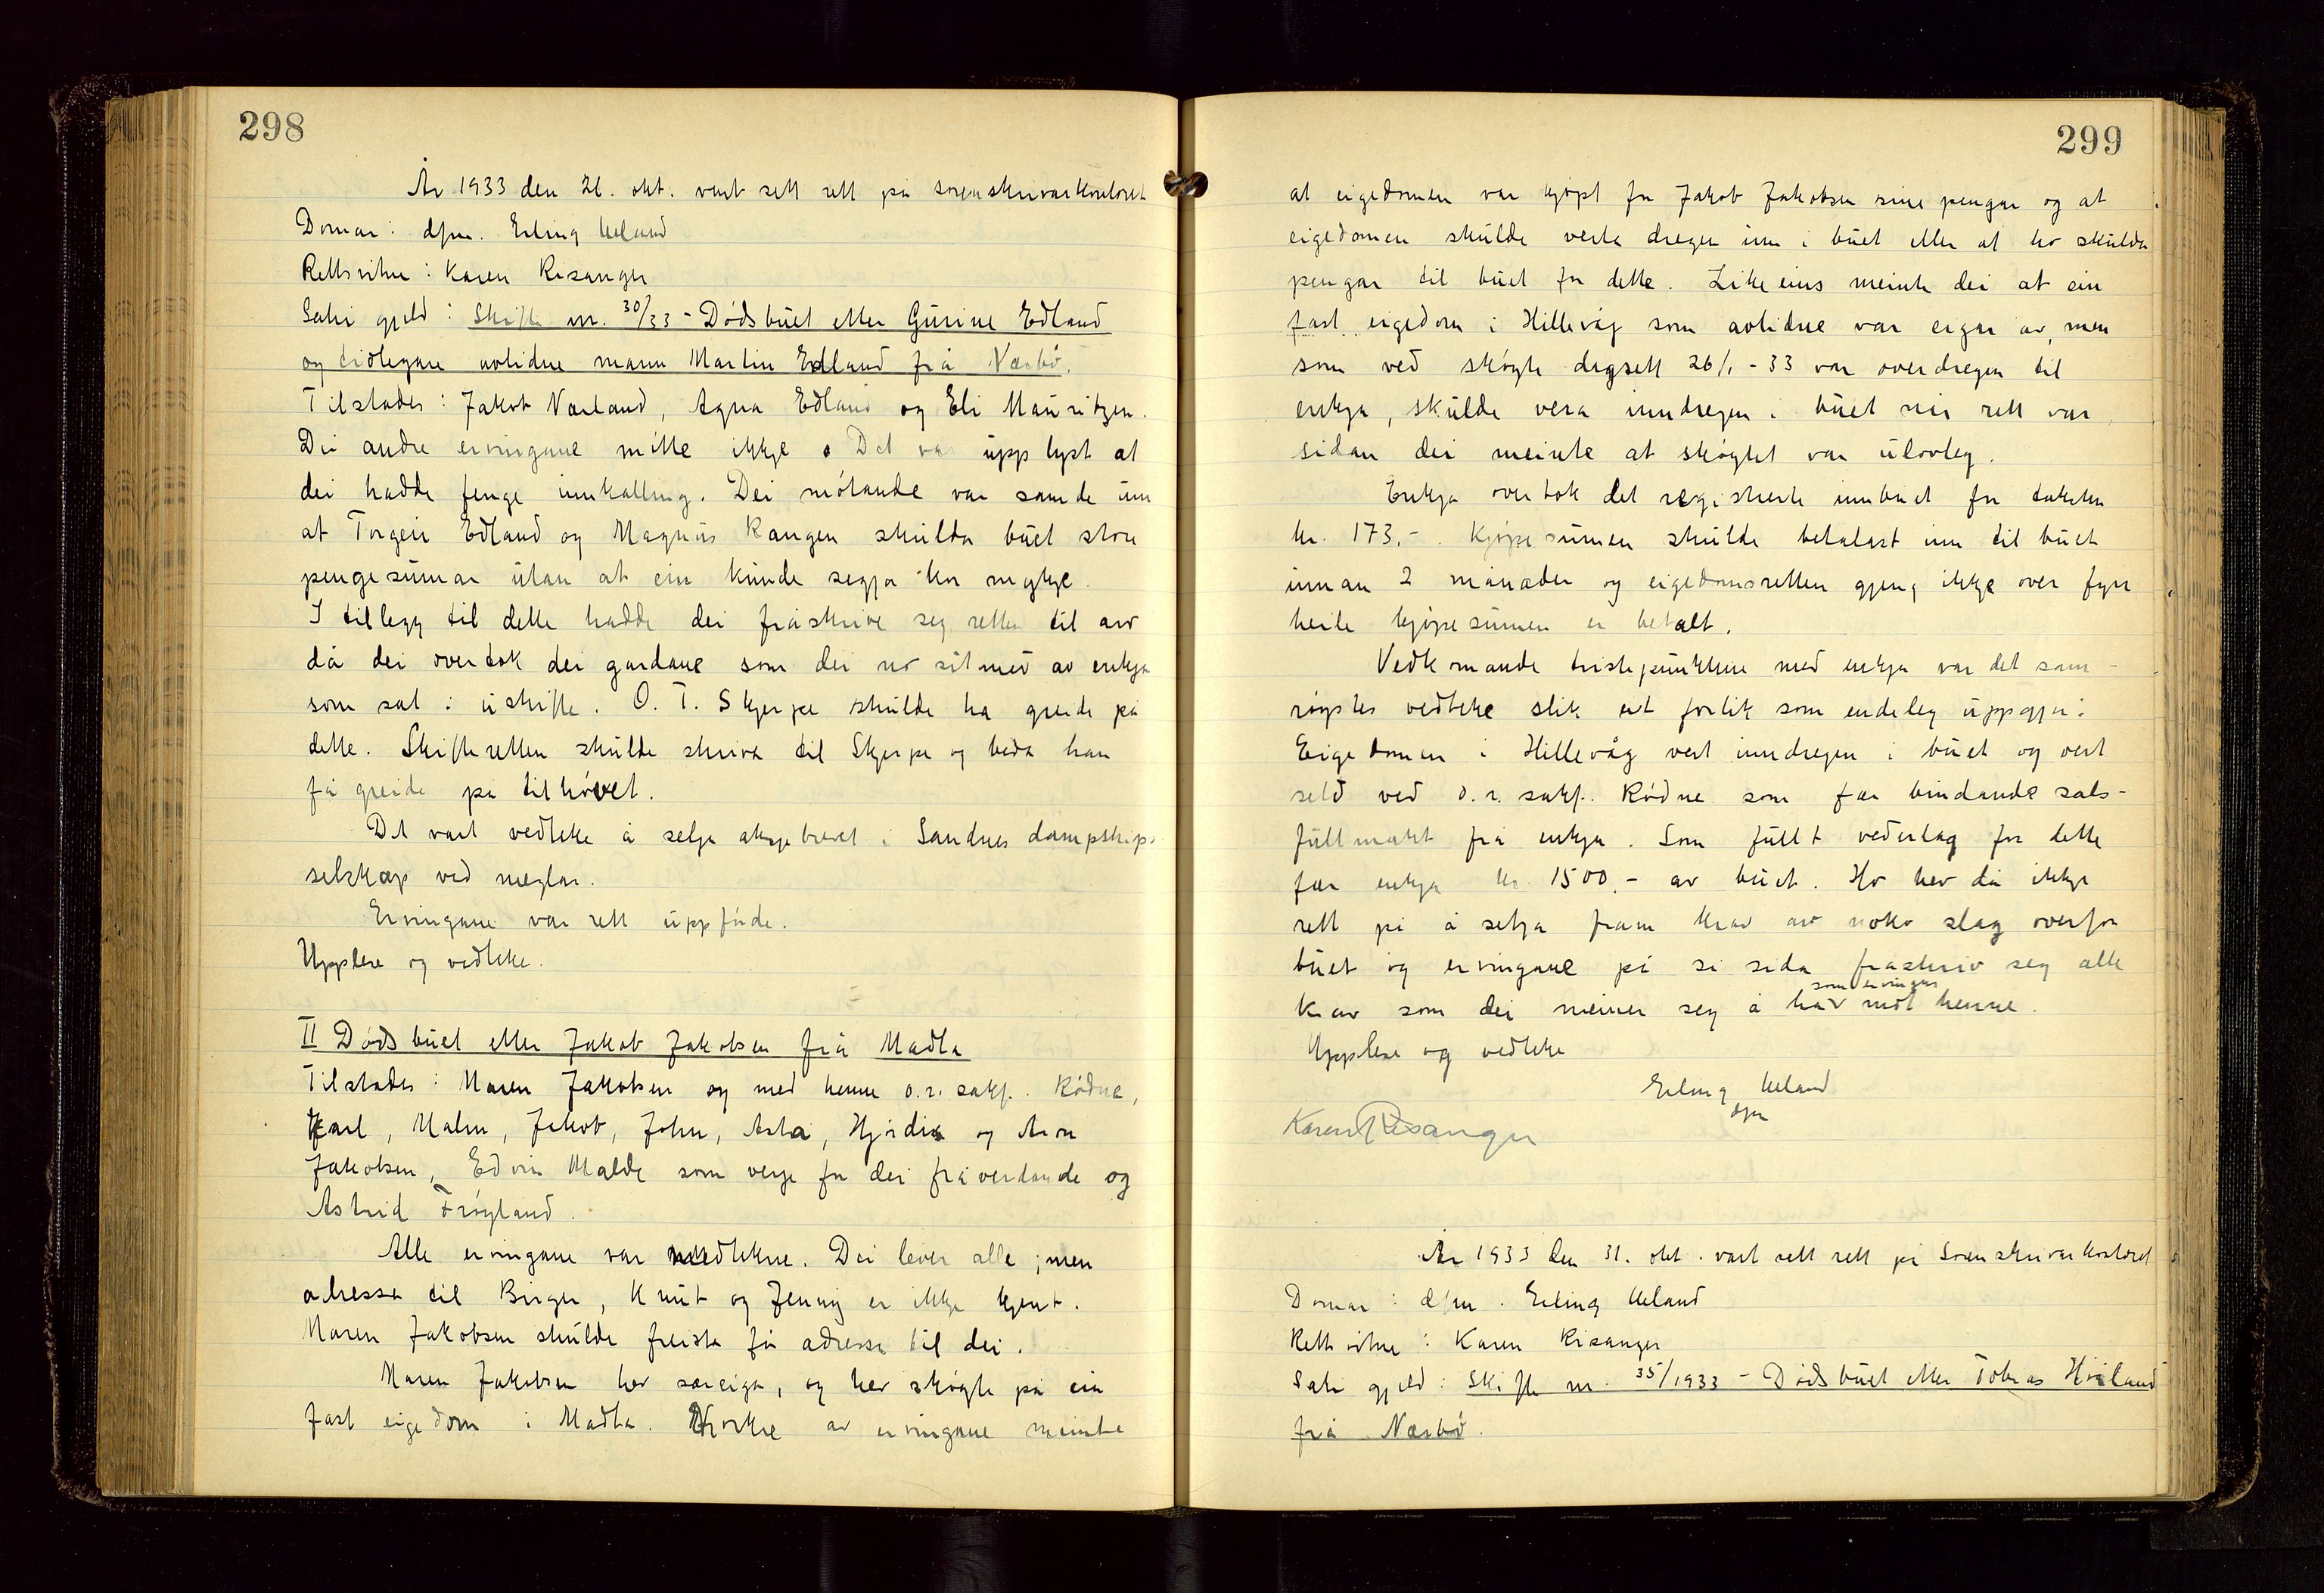 298
År 1933 den 26. okt. vart sett rett på sorenskrivarkontoret
Domar: dfm. Erling Ueland
Rettsvitne: Karen Risanger
Saki gjeld: Skifte nr. 30/33 - Dødsbuet etter Gurine Edland
og tidlegare avlidne mann Martin Edland frå Nærbø.
Tilstades: Jakob Nærland, Agna Edland og Eli Mauritzen.
Dei andre ervingane møtte ikkje. Det var upplyst at
dei hadde fenge innkalling. Dei møtande var samde um
at Torgeir Edland og Magnus Rangen skulda buet store
pengesumar utan at ein kunde segja kor mykje.
I tillegg til dette hadde dei fråskrive seg retten til arv
då dei overtok dei gardane som dei no sit med av enkja
som sat i uskifte. O. T. Skjerpe skulde ha greide på
dette. Skifteretten skulde skriva til Skjerpe og beda han
få greide på tilhøvet.
Det vart vedteke å selja aksjebrevet i Sandnes dampskips-
selskap ved meglar.
Ervingane var rett uppførde.
Upplese og vedteke.
II Dødsbuet etter Jakob Jakobsen frå Madla
Tilstades: Maren Jakobsen og med henne o.r. sakf. Rødne,
Karl, Malm, Jakob, John, Asta, Hjørdis og Arne
Jakobsen, Edvin Malde som verje for dei fråverdande og
Astrid Frøyland.
Alle ervingane var medtekne. Dei lever alle; men
adressa til Birger, Knut og Jenny er ikkje kjent.
Maren Jakobsen skulde freista få adressa til dei.
Maren Jakobsen hev særeige, og hev skøyte på ein
fast eigedom i Madla. Nokre av ervingane meinte
299
at eigedomen var kjøpt for Jakob Jakobsen sine pengar og at
eigedomen skulde verta dregen inn i buet eller at ho skulda
pengar til buet for dette. Likeeins meinte dei at ein
fast eigedom i Hillevåg som avlidne var eigar av, men
som ved skøyte dagsett 26/1 - 33 var overdregen til
enkja, skulde vera inndregen i buet når rett var,
sidan dei meinte at skøytet var ulovleg.
Enkja overtok det registrerte innbuet for taksten
kr. 173,-. Kjøpesumen skulde betalast inn til buet
innan 2 månader og eigedomsretten gjeng ikkje over fyrr
heile kjøpesumen er betalt.
Vedkomande tvistepunktene med enkja var det sam-
røystes vedteke slik eit forlik som endeleg uppgjer:
Eigedomen i Hillevåg vert inndregen i buet og vert
seld ved o.r. sakf. Rødne som fær bindande sals-
fullmakt frå enkja. Som fullt vederlag for dette
fær enkja kr. 1500,- av buet. Ho hev då ikkje
rett på å setja fram krav av noko slag overfor
buet og ervingane på si sida fråskriv seg alle
krav som dei meiner seg å hav som ervingar mot henne.
Upplese og vedteke
Erling Ueland
dfm
Karen Risanger
År 1933 den 31. okt. vart sett rett på Sorenskrivarkontoret
Domar: dfm. Erling Ueland
Rettsvitne: Karen Risanger
Saki gjeld: Skifte nr. 35/1933 - Dødsbuet etter Tobias Håland
frå Nærbø.